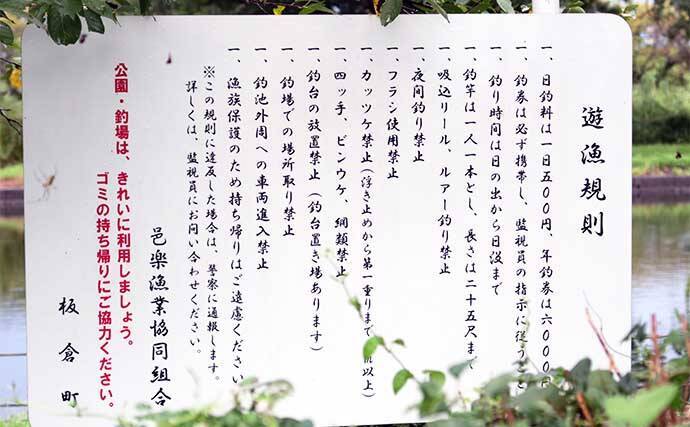 遊漁規則
一、日釣料は一日五〇〇円、年釣券は六〇〇〇円
一、釣券は必ず携帯し、監視員の指示に従うこと
一、釣り時間は日の出から日没まで
一、釣竿は一人一本とし、長さは二十五尺まで
一、吸込リール、ルアー釣り禁止
一、夜間釣り禁止
一、フラシ使用禁止
一、カッツケ禁止(浮き止めから第一重りまで 以上)
一、四ッ手、ビンウケ、網類禁止
一、釣台の放置禁止(釣台置き場あります)
一、釣場での場所取り禁止
一、釣池外周への車両進入禁止
一、漁族保護のため持ち帰りはご遠慮ください
※この規則に違反した場合は、警察に通報します。
詳しくは、監視員にお問い合わせください。
邑楽漁業協同組合
公園・釣場は、きれいに利用しましょう。
ゴミの持ち帰りにご協力ください。
板倉町